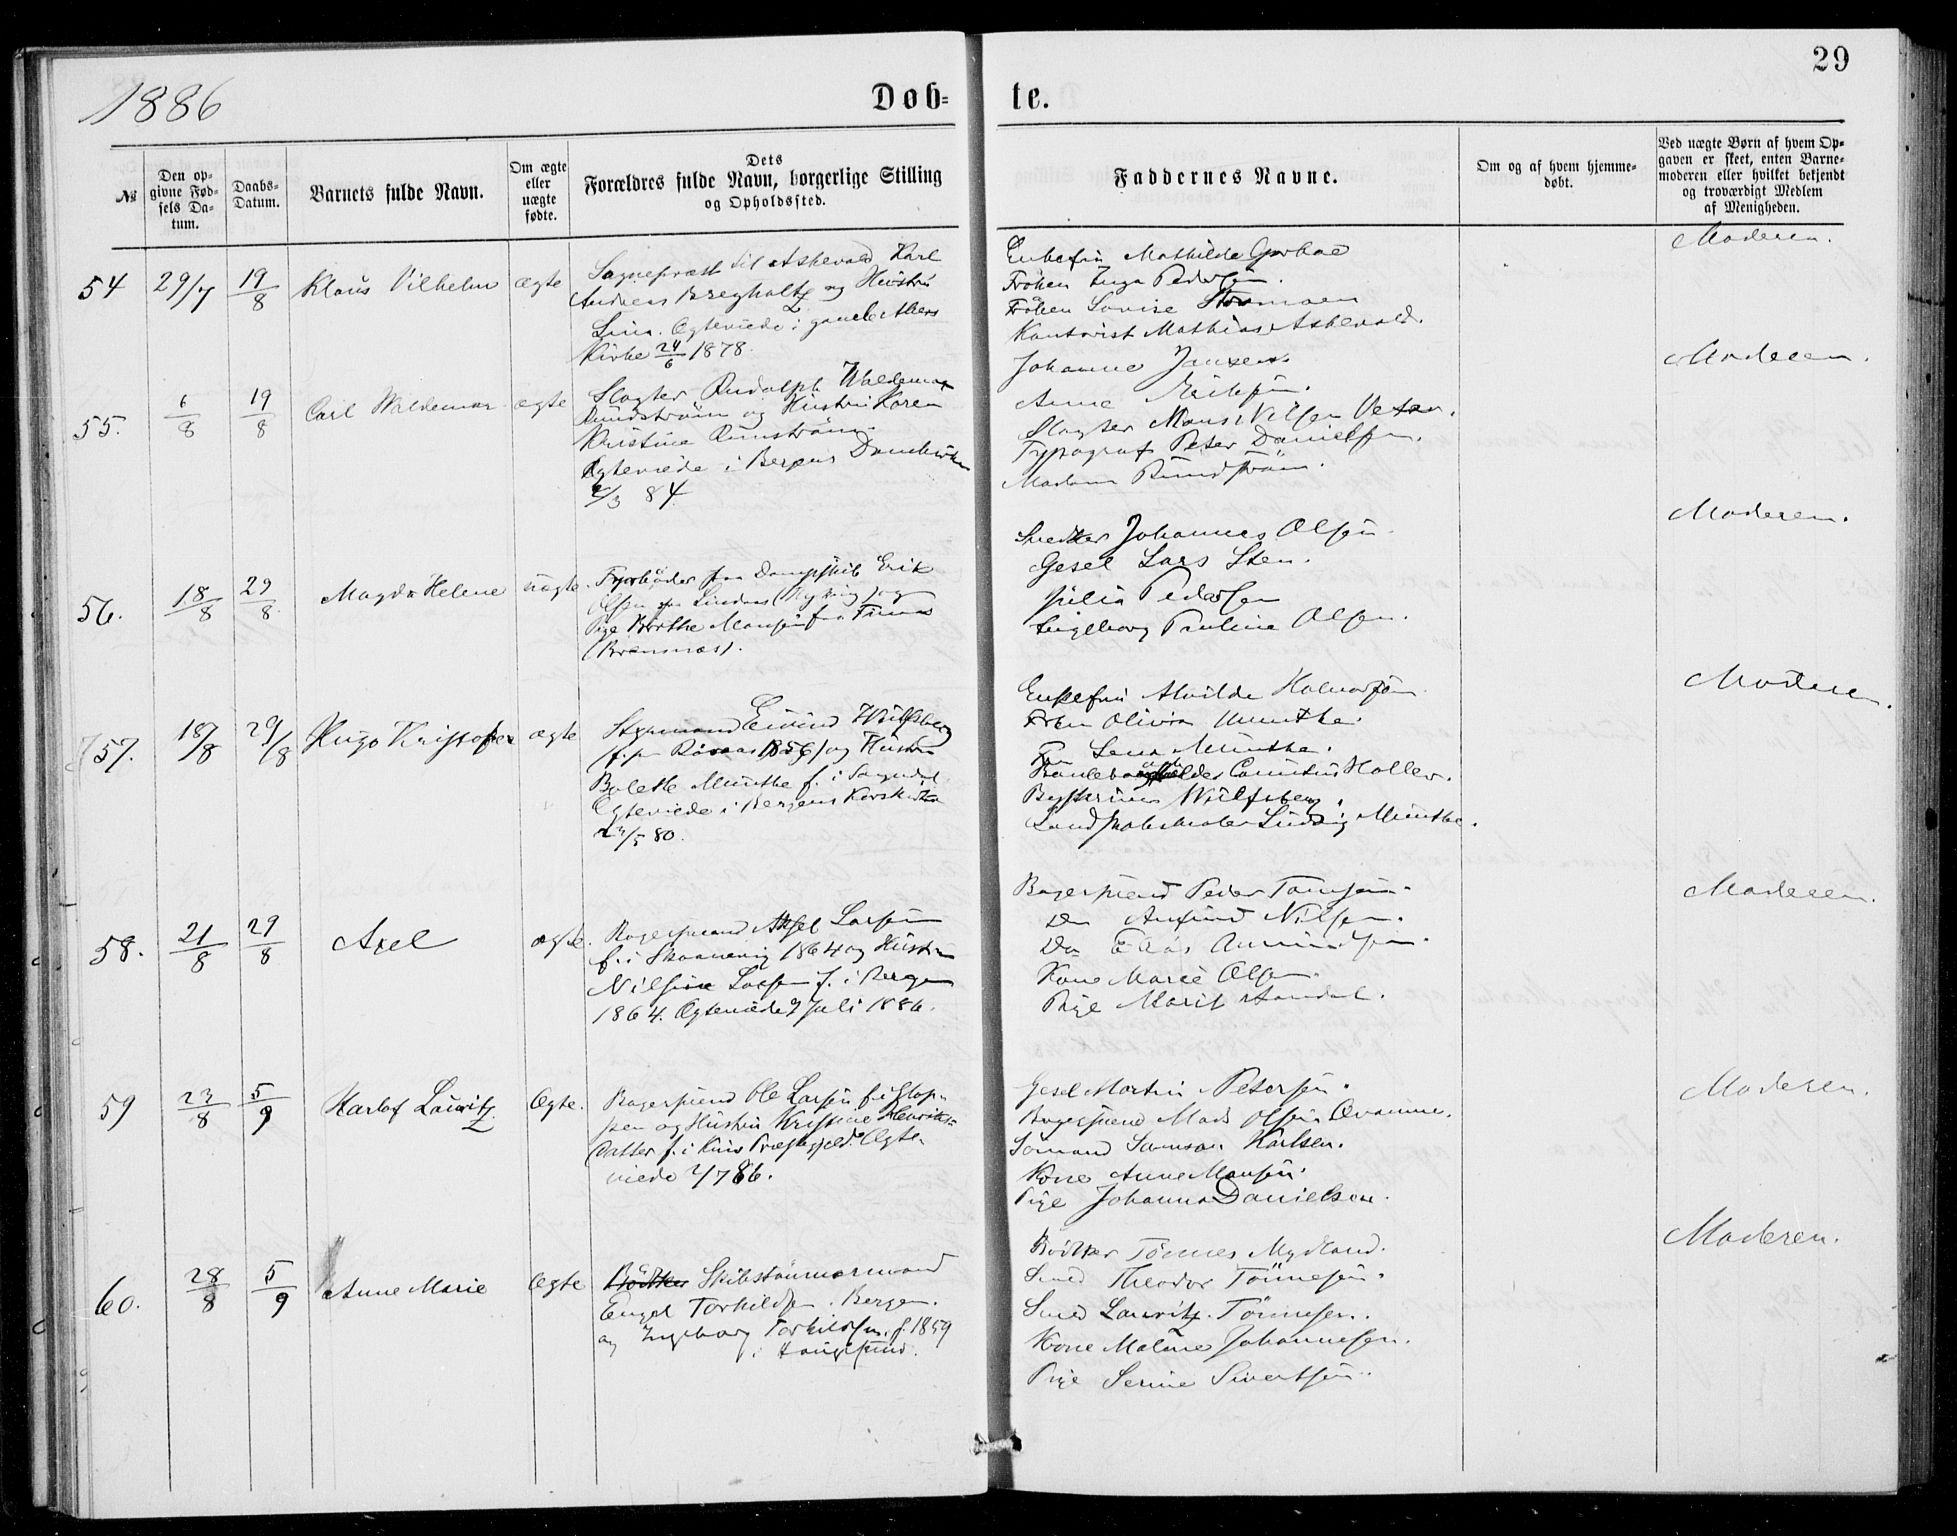 29
1886
Døb-
te.
№
Den op-
givne Fød-
sels Da-
tum.
Daabs-
Datum.
Barnets fulde Navn.
Om ægte
eller
uægte
fødte.
Dets
Forældres fulde Navn, borgerlige Stilling
og Opholdssted.
Faddernes Navne.
Om og af hvem hjemme-
døbt.
Ved uægte Børn af hvem Op-
gaven er skeet, enten Barne-
moderen eller hvilket bekjendt
og troværdigt Medlem
af Menigheden.
54 29/7 19/8 Klaus Vilhelm ægte
Sognepræst til Askevold Karl
Andreas Bregholtz og Hustru
Lina. Ægteviede i gamle Akers
Kirke 24/6 1878.
Enkefru Mathilde
Frøken Inga Pedersen.
Frøken Lovise
Kontorist Mathias Askevold.
Moderen.
55. 6/8 19/8 Carl Waldemar ægte
Slagter Rudolph Waldemar
Rundstrøm og Hustru Karen
Kristine Runstrøm.
Ægteviede i Bergens Domkirke
2/3 84.
Johanne Jansen
Anne
Slagter Mons Nilsen
Typograf Peter Danielsen.
Madam Rundstrøm.
Moderen.
56. 18/8 29/8 Magda Helene uægte.
Fyrbøder paa Dampskib Erik
Olsen og
Pige Berthe Monsen fra
(Bremnæs).
Snedker Johannes Olsen
Gesel Lars Sten.
Julia Pedersen
Ingeborg Pauline Olsen.
Moderen.
57. 18/8 29/8 Hugo Kristofer ægte
Styrmand Eivind Wulfsberg
f. paa Røraas 1856) og Hustru
Bolette Munthe f. i Sogndal
Ægteviede i Bergens Korskirke
/5 80.
Enkefru Alvilde Halvorsen
Frøken Olivia Munthe.
Lena Munthe.
Holler.
Wulfsberg.
Landskabsmaler Ludvig Munthe.
Moderen.
58. 21/8 29/8 Axel ægte.
Bagersvend Aksel Larsen
f. i Skaanevig 1864 og Hustru
Nilsine Larsen f. i Bergen
1864. Ægteviede 7 Juli 1886.
Bagersvend Peder Tomsen.
Do Amund Nilsen.
Do Elias Amundsen.
Kone Marie Olsen.
Pige Marit
Moderen.
59 23/8 5/9 Karlof Lauritz Ægte.
Bagersvend Ole Larsen f. i Glop-
pen og Hustru Kristine
Datter f. i Kins Præstegjeld. Ægte-
viede 2/7 86.
Gesel Martin Petersen.
Bagersvend Mads Olsen
Sømand Samson Karlsen.
Kone Anne Monsen.
Pige Johanna Danielsen.
Moderen.
60. 28/8 5/9 Anne Marie Ægte
Bødker Skibstømmermand
Engel Torkildsen. Bergen.
og Ingeborg Torkildsen. f. 1859
i Haugesund.
Bødker Tønnes Mydland.
Smed Theodor Tønnesen.
Smed Lauritz Tønnesen.
Kone Malene Johannesen.
Pige Serine Sivertsen.
Moderen.